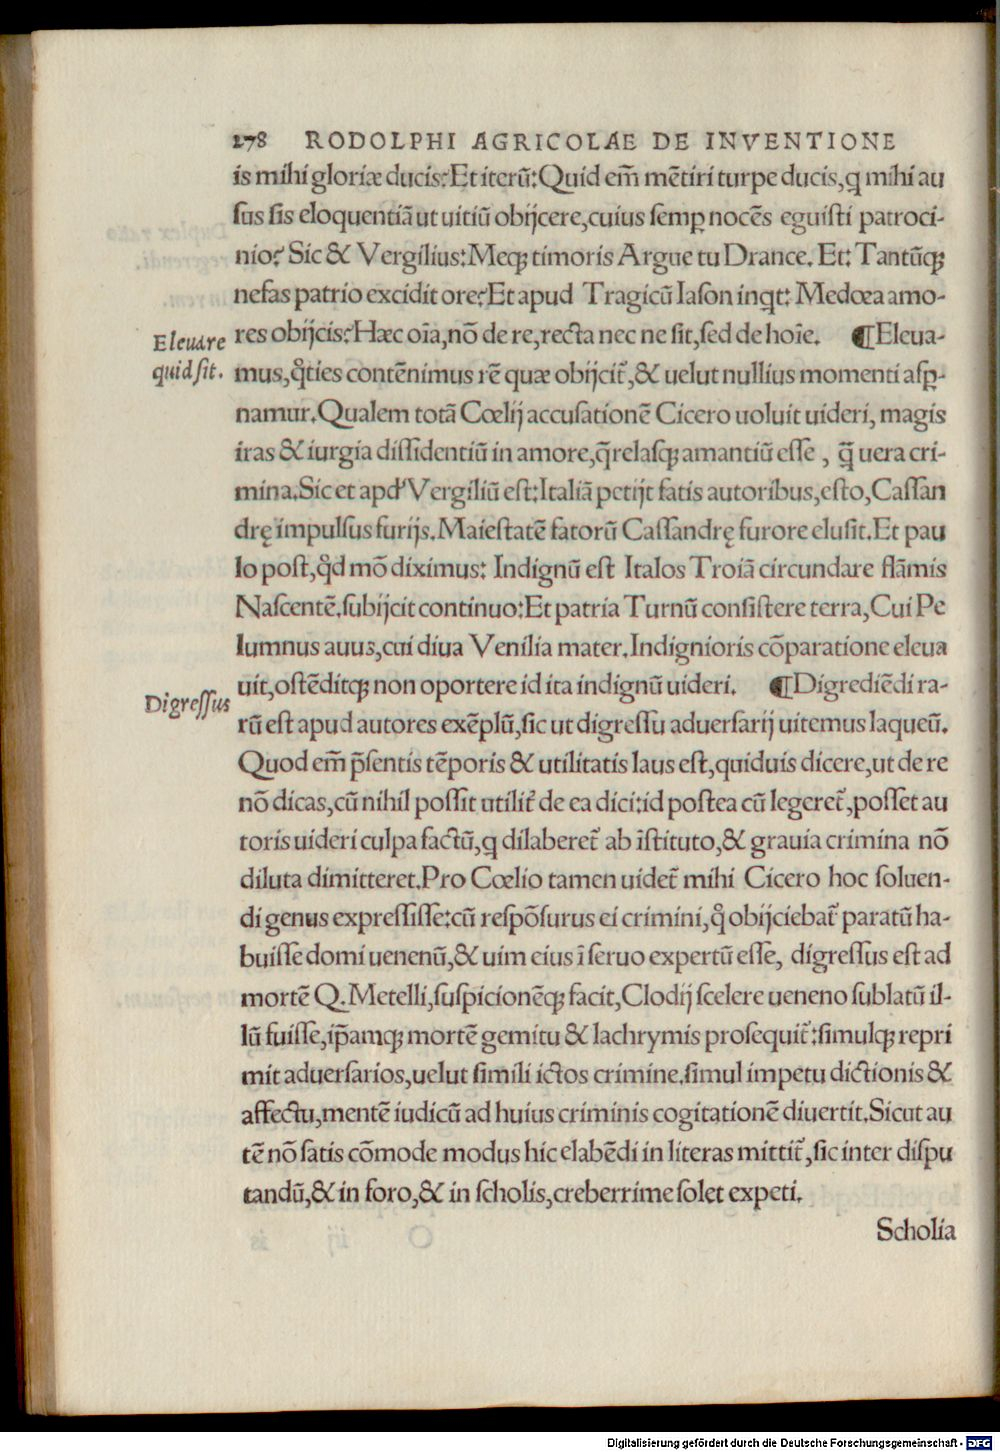 278 RODOLPHI AGRICOLAE DE INVENTIONE
is mihi gloriæ ducis? Et iterū: Quid em̄ mētiri turpe ducis, q mihi au
ſus ſis eloquentiā ut uitiū obijcere, cuius ſemꝑ nocēs eguiſti patroci-
nio? Sic & Vergilius: Meqꝫ timoris Argue tu Drance. Et: Tantūqꝫ
nefas patrio excidit ore? Et apud Tragicū Iaſon inqt: Medœa amo-
Eleuare
quid ſit.
res obijcis? Hæc oīa, nō de re, recta nec ne ſit, ſed de hoīe. ¶ Eleua-
mus, qͦties contēnimus rē quæ obijcit᷑, & uelut nullius momenti aſꝑ-
namur. Qualem totā Cœlij accuſationē Cicero uoluit uideri, magis
iras & iurgia diſſidentiū in amore, q̄relaſqꝫ amantiū eſſe, q̄̄ uera cri-
mina. Sic et apd' Vergiliū eſt: Italiā petijt fatis autoribus, eſto, Caſſan
drę impulſus furijs. Maieſtatē fatorū Caſſandrę furore eluſit. Et pau
lo poſt, qͦd mō diximus: Indignū eſt Italos Troiā circundare flāmis
Naſcentē. ſubijcit continuo: Et patria Turnū conſiſtere terra, Cui Pe
lumnus auus, cui diua Venilia mater. Indignioris cōparatione eleua
uit, oſtēditqꝫ non oportere id ita indignū uideri. ¶ Digrediēdi ra-
Digreſſus
rū eſt apud autores exēplū, ſic ut digreſſu aduerſarij uitemus laqueū.
Quod em̄ p̄ſentis tēporis & utilitatis laus eſt, quiduis dicere, ut de re
nō dicas, cū nihil poſſit utilit᷑ de ea dici: id poſtea cū legeret᷑, poſſet au
toris uideri culpa factū, q dilaberet᷑ ab īſtituto, & grauia crimina nō
diluta dimitteret. Pro Cœlio tamen uidet᷑ mihi Cicero hoc ſoluen-
di genus expreſſiſſe: cū reſpōſurus ei crimini, qͦ obijciebat᷑ paratū ha-
buiſſe domi uenenū, & uim eius ī ſeruo expertū eſſe, digreſſus eſt ad
mortē Q. Metelli, ſuſpicionēqꝫ facit, Clodij ſcelere ueneno ſublatū il-
lū fuiſſe, ip̄amqꝫ mortē gemitu & lachrymis proſequit᷑: ſimulqꝫ repri
mit aduerſarios, uelut ſimili ictos crimine. ſimul impetu dictionis &
affectu, mentē iudicū ad huius criminis cogitationē diuertit. Sicut au
tē nō ſatis cōmode modus hic elabēdi in literas mittit᷑, ſic inter diſpu
tandū, & in foro, & in ſcholis, creberrime ſolet expeti.
Scholia
Digitalisierung gefördert durch die Deutsche Forschungsgemeinschaft - DFG